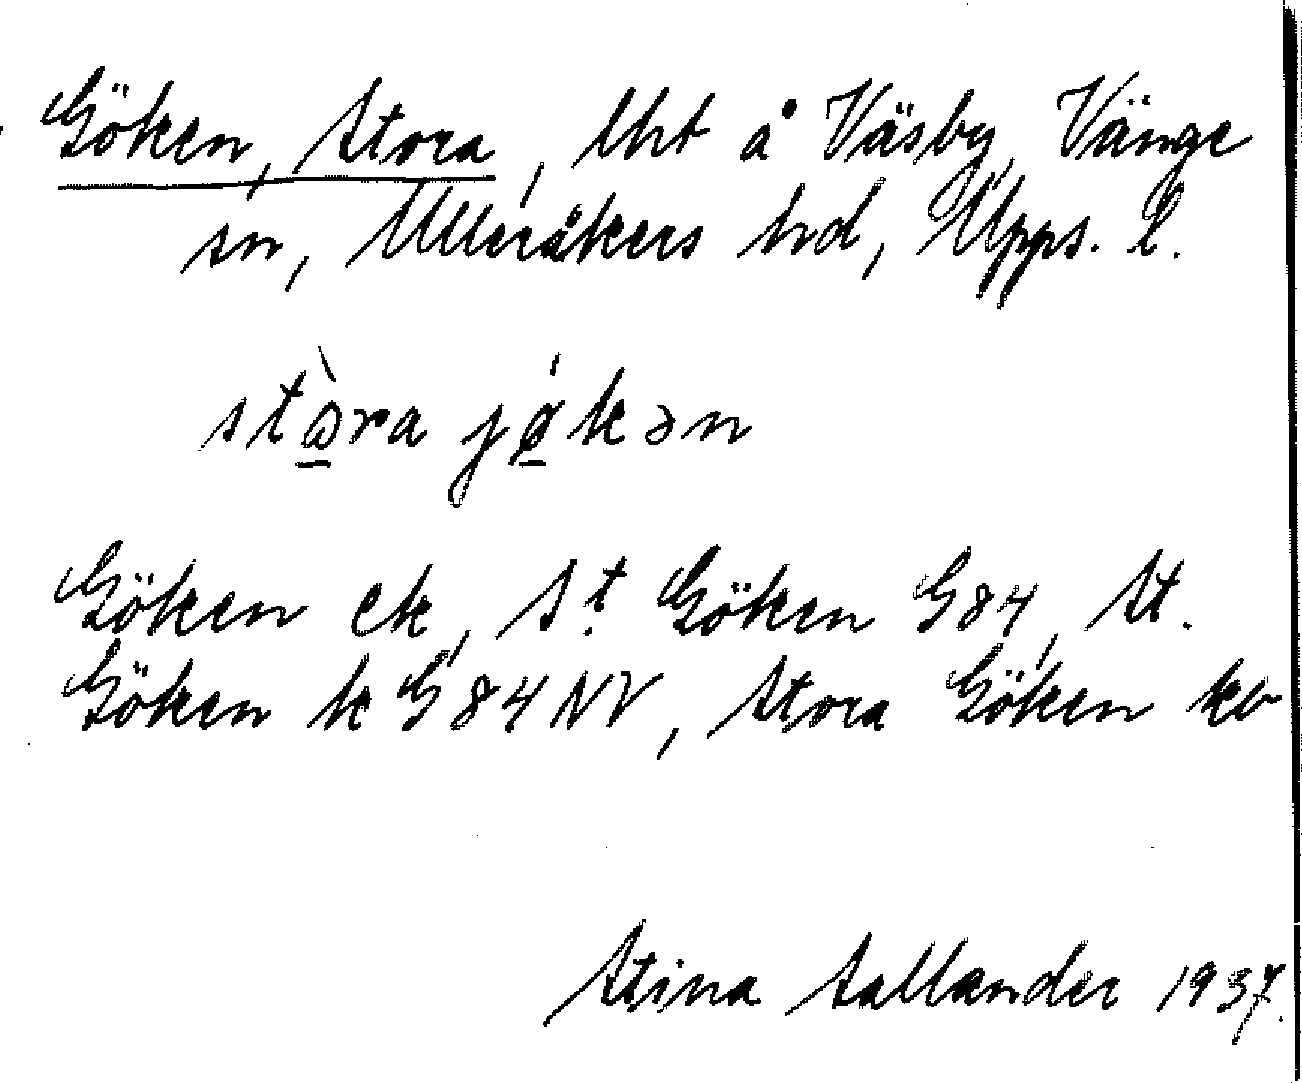 Göken, Stora, lht å Väsby, Vänge
sn, Ulleråkers hd, Upps. l.
stòra jø̀́kən
Göken ek, St. Göken G84, St.
Göken k G84NV, Stora Göken kv
Stina Sallander 1937.